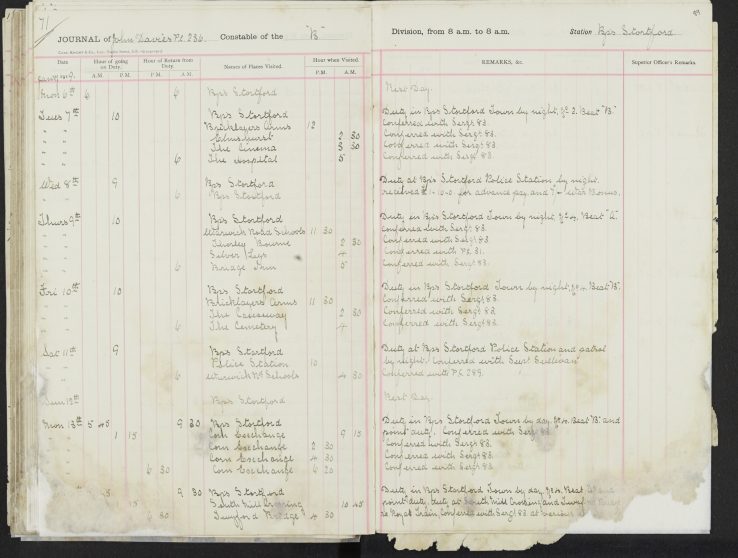 71
JOURNAL of John Davies P.C. 286. Constable of the "B" Division, from 8 a.m. to 8 a.m. Station Bps Stortford
Date Hour of going on Duty. Hour of Return from Duty. Names of Places Visited. Hour when Visited. REMARKS, &c. Superior Officer's Remarks.
A.M. P.M. P.M. A.M. P.M. A.M.
Mon 6th 6 6 Bps Stortford Rest Day.
Tues 7th 10 Bps Stortford Duty in Bps Stortford Town by night, No 2. Beat "B".
" Bricklayers Arms 12 Conferred with Sergt 83.
" 2 30 Conferred with Sergt 83.
" The Cinema 3 30 Conferred with Sergt 83.
" 6 The Hospital 5 Conferred with Sergt 83.
Wed 8th 9 Bps Stortford Duty at Bps Stortford Police Station by night.
" 6 Bps Stortford received for advance pay and War Bonus.
Thurs 9th 10 Bps Stortford Duty in Bps Stortford Town by night, Beat "A".
" Warwick Road Schools 11 30 Conferred with Sergt 83.
" Thorley Bourne 2 30 Conferred with Sergt 83.
" Silver Leys 4 Conferred with P.C. 31.
" 6 Bridge 5 Conferred with Sergt 83.
Fri 10th 10 Bps Stortford Duty in Bps Stortford Town by night, Beat "B".
" Bricklayers Arms 11 30 Conferred with Sergt 83.
" The Causeway 2 30 Conferred with Sergt 83.
" 6 The Cemetery 4 Conferred with Sergt 83.
Sat 11th 9 Bps Stortford Duty at Bps Stortford Police Station and patrol
" Police Station 10 by night. Conferred with Supt Sullivan
" 6 Warwick Rd Schools 4 30 Conferred with P.C. 289.
Sun 12th Bps Stortford Rest Day.
Mon 13th 5 45 9 30 Bps Stortford Duty in Bps Stortford Town by day, Beat "B" and
1 15 Corn Exchange 9 15 point duty. Conferred with Sergt 83
Corn Exchange 2 30 Conferred with Sergt 83.
Corn Exchange 4 30 Conferred with Sergt 83.
6 30 Corn Exchange 6 20 Conferred with Sergt 83.
5 9 30 Bps Stortford Duty in Bps Stortford Town by day, Beat
15 South Mill Crossing 10 45 point duty, duty at South Mill Crossing and
30 Twyford Bridge 4 30 Royal Train, Conferred with Sergt 83 at various